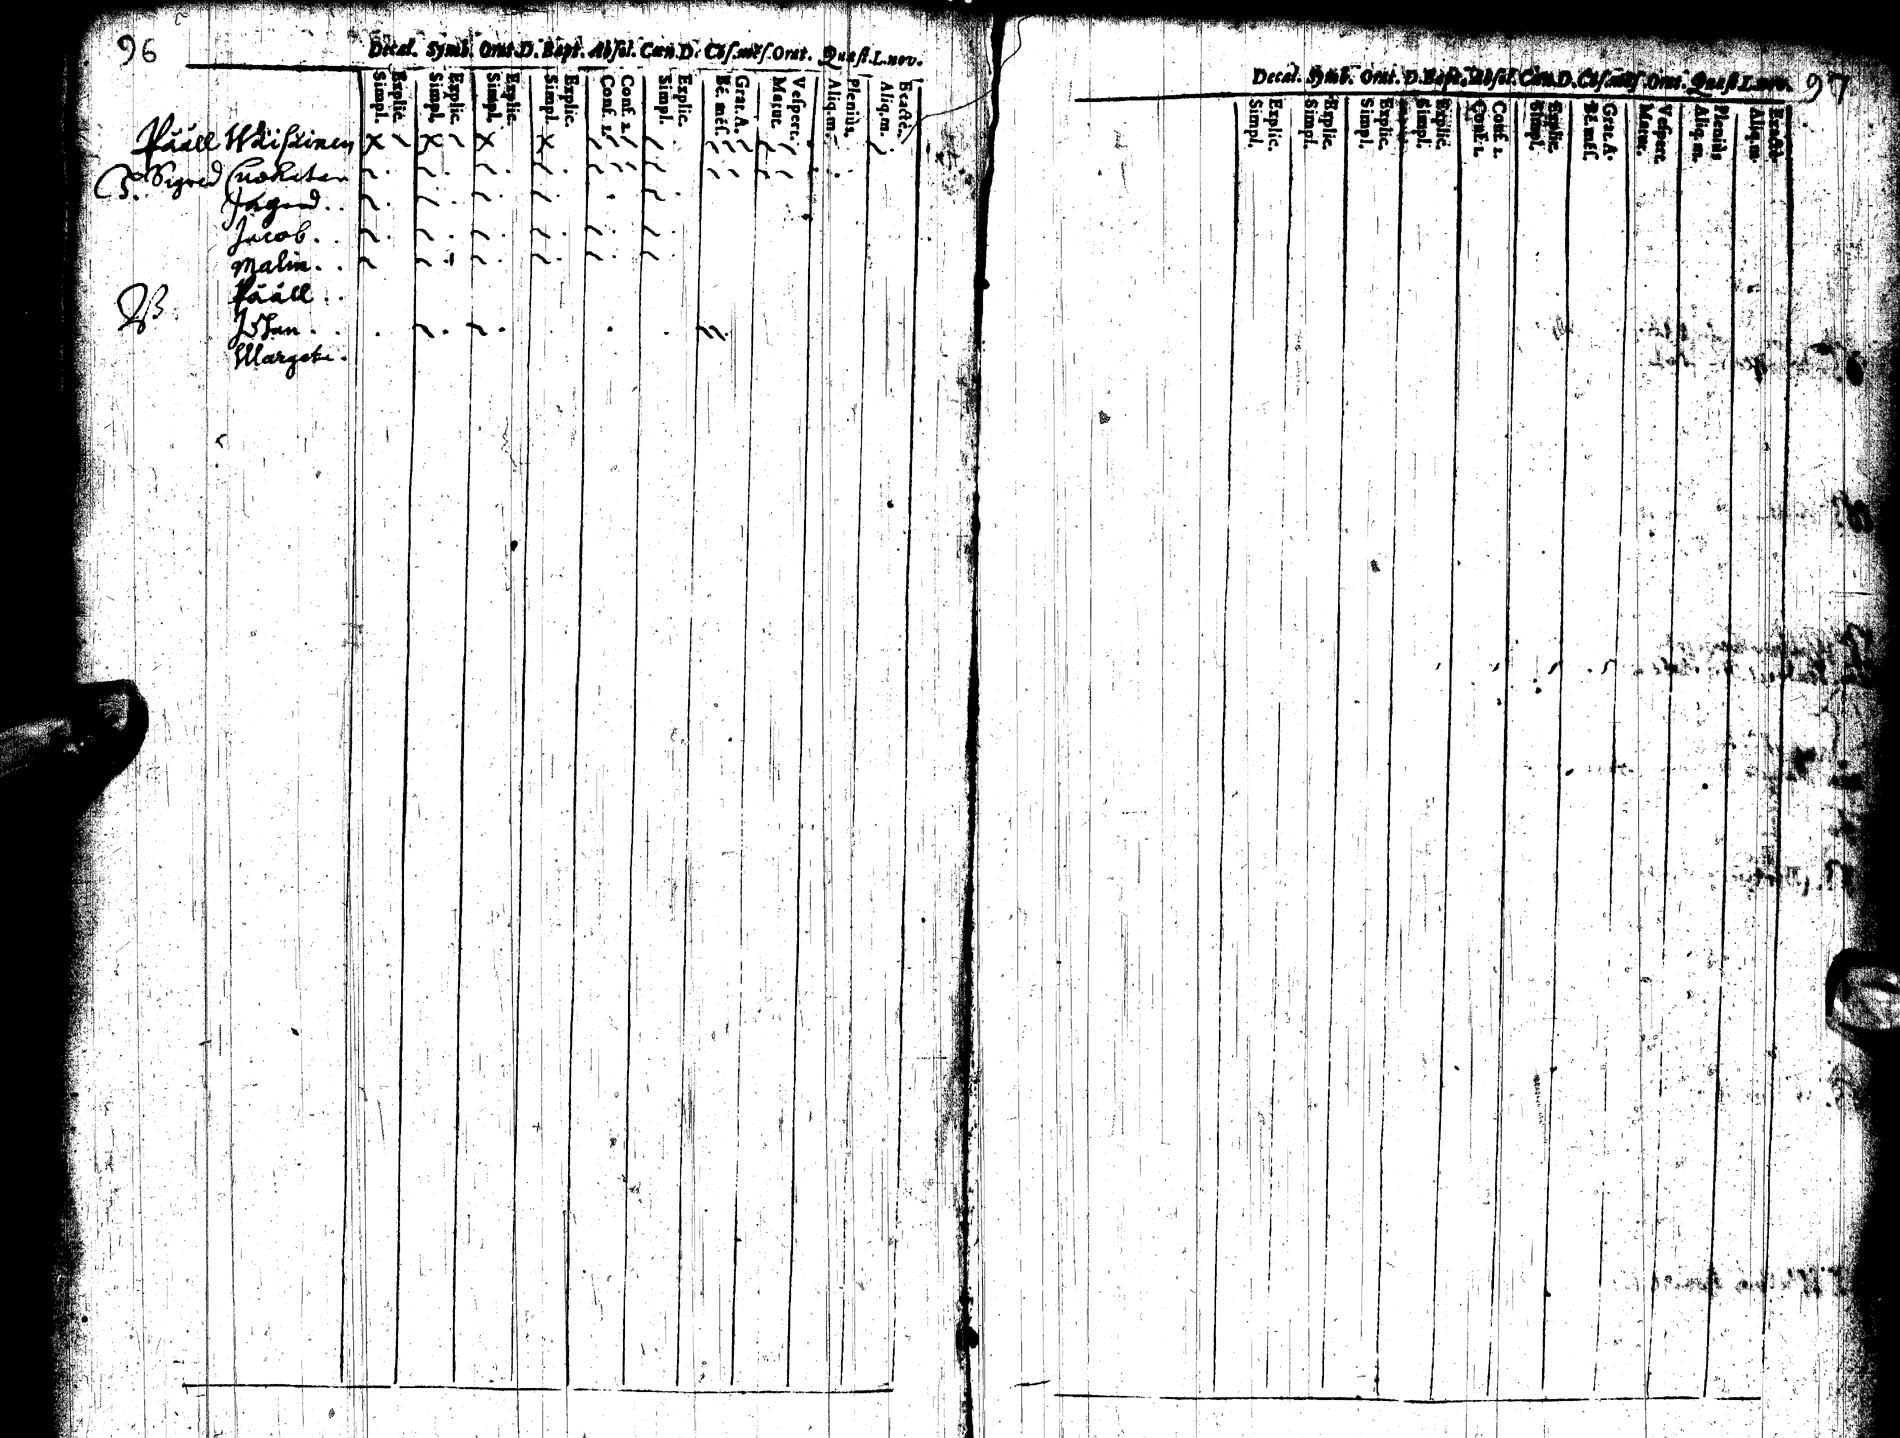 96
Decal. Symb. Orat.D. Bapt. Absol. Cœn.D. Cōf.mēſ. Orat. Quæſt. L.nov.
Simpl. Explic. Simpl. Explic. Simpl. Explic. Simpl. Explic. Conf. 1. Conf. 2. Simpl. Explic. Bē. mēſ. Grat. A. Matut. Veſpert. Aliq.m. Pleniùs. Aliq.m. Exactè.
Påål Wäisäinen
Sigred
Ingred..
Jacob..
Malin..
Pååll..
Johan..
Margeta.
Decal. Symb. Orat. D. Bapt. Absol. Cœn.D. Cōf.mēſ. Orat. Quæſt. L.nov. 97
Simpl. Explic. Simpl. Explic. Simpl. Explic. Simpl. Explic. Conf. 1. Conf. 2. Simpl. Explic. Bē. mēſ. Grat. A. Matut. Veſpert. Aliq.m. Pleniùs Aliq.m. Exactè